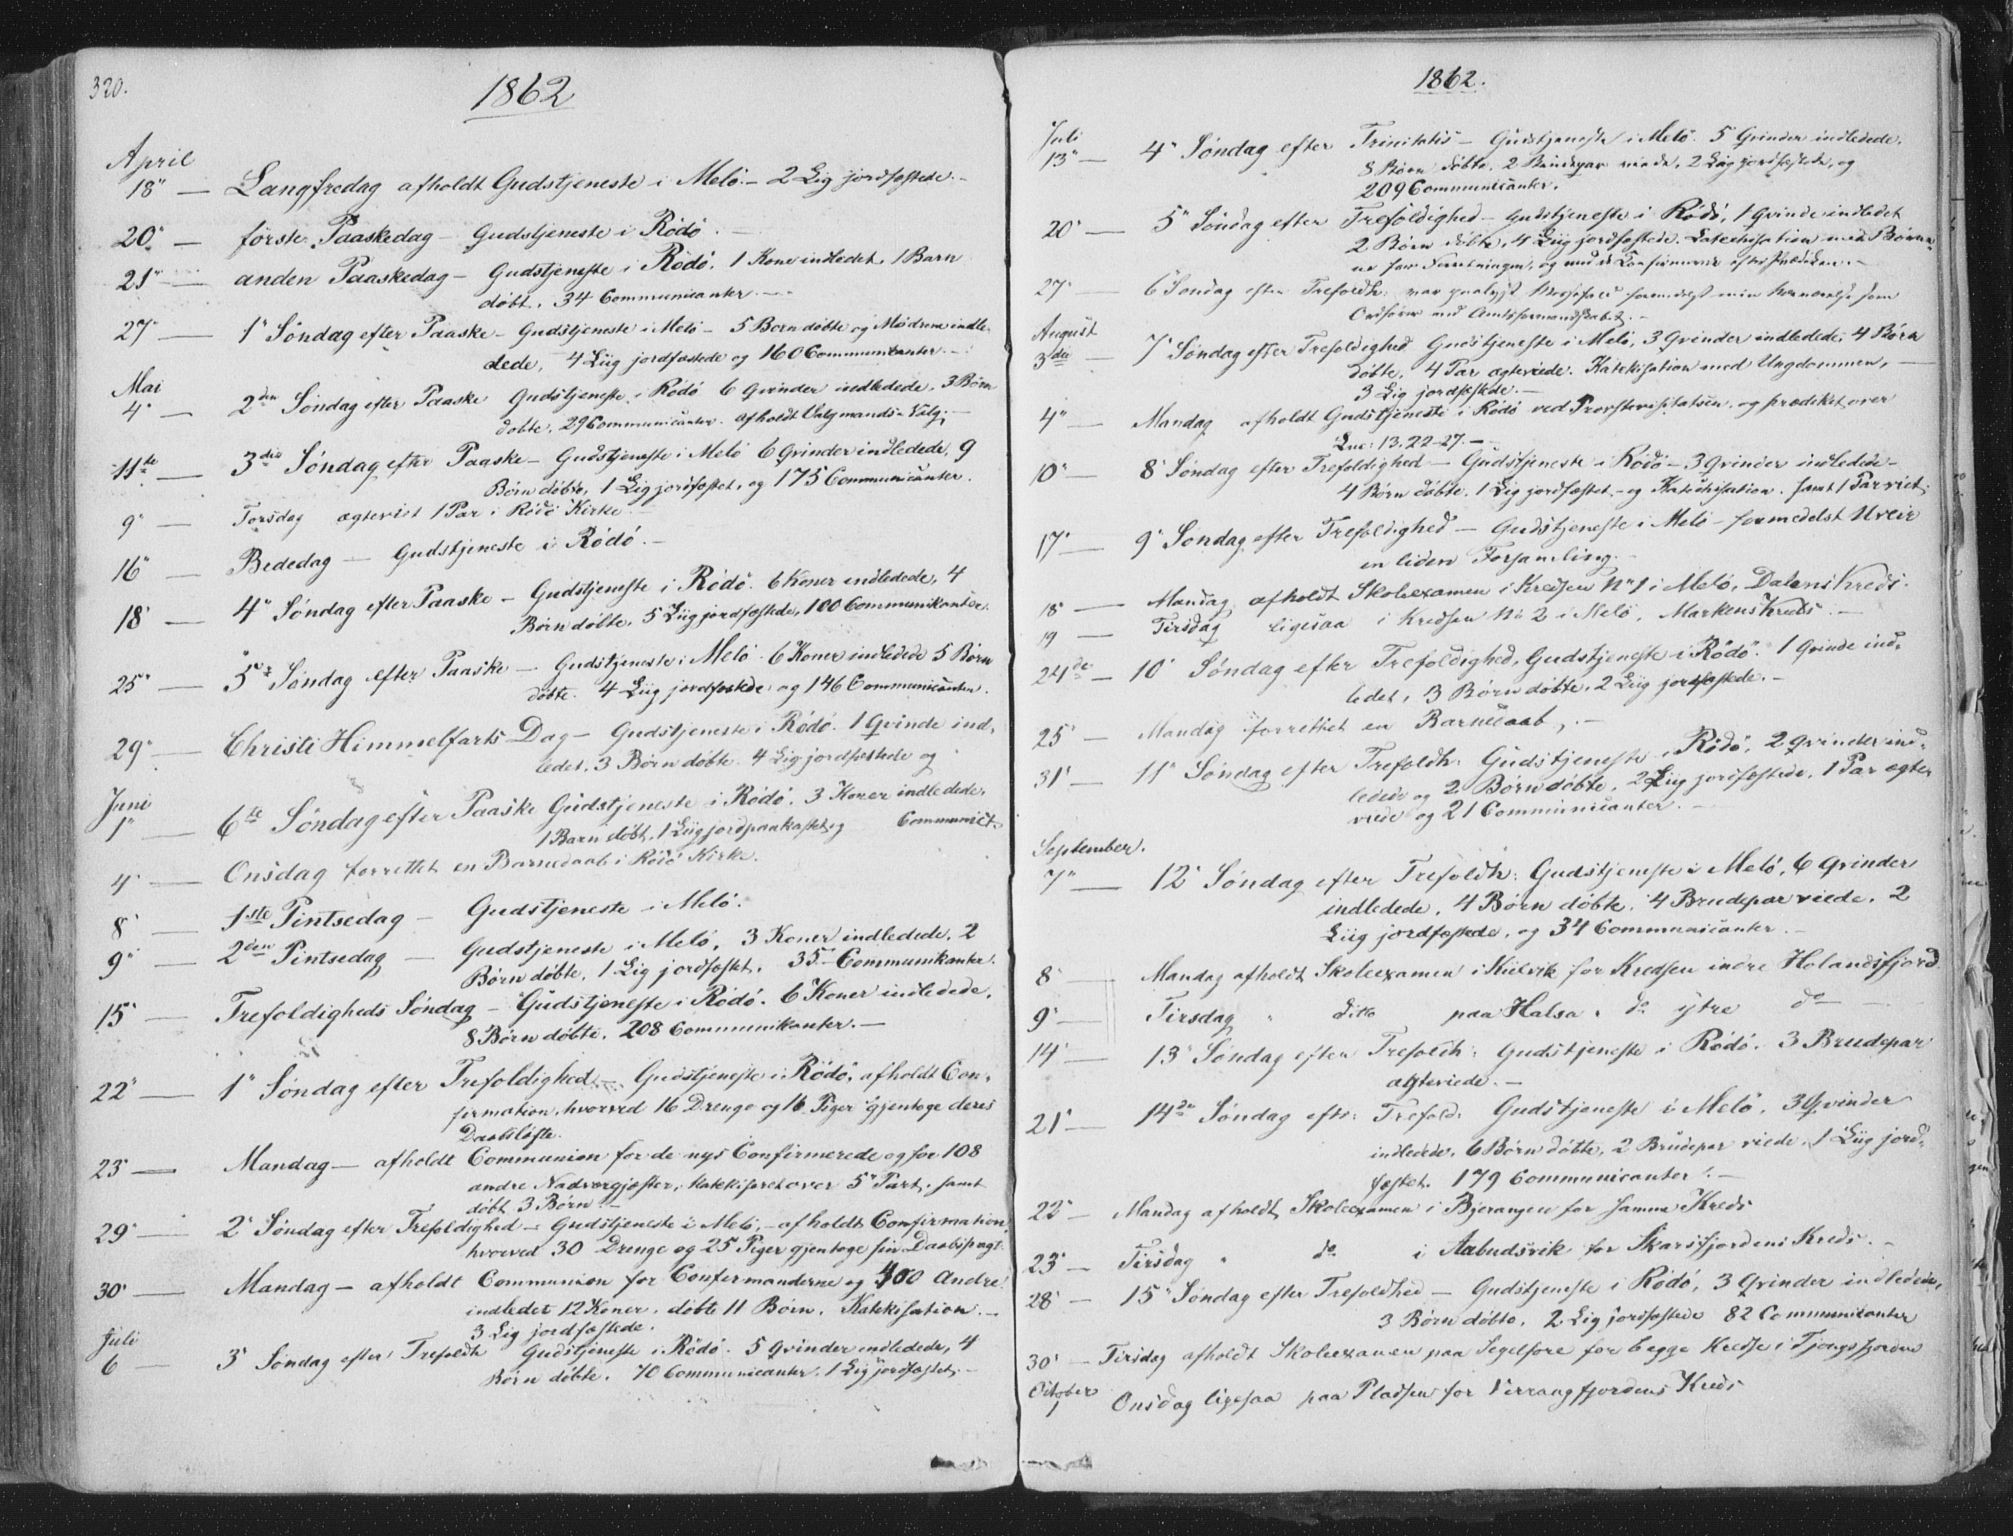 320.
1862
April
18" — Langfredag afholdt Gudstjeneste i Melö. — 2 Lig jordfæstede. —
20" — förste Paaskedag — Gudstjeneste i Rödö. —
21" — anden Paaskedag — Gudstjeneste i Rödö. 1 Kone indledet, 1 Barn
döbt. 34 Communicanter. —
27" — 1" Söndag efter Paaske — Gudstjeneste i Melö — 5 Börn döbte og Mödrene indle-
dede, 4 Liig jordfæstede og 160 Communicanter. —
Mai
4" — 2den Söndag efter Paaske Gudstjeneste i Rödö 6 Qvinder indledede. 3 Börn
döbte. 29 Communicanter. afholdt Valgmands-Valg. —
11te — 3die Söndag efter Paaske — Gudstjeneste i Melö 6 Qvinder indledede, 9
Börn döbte, 1 Lig jordfæstet, og 175 Communicanter.
9" — Torsdag ægteviet 1 Par i Rödö Kirke. —
16" — Bededag — Gudstjeneste i Rödö. —
18" — 4" Söndag efter Paaske — Gudstjeneste i Rödö. 6 Koner indledede, 4
Börn döbte, 5 Liig jordfæstede, 100 Communikanter.
25" — 5te Söndag efter Paaske — Gudstjeneste i Melö. 6 Koner indledede 5 Börn
döbte. 4 Liig jordfæstede og 146 Communicanter.
29" — Christi Himmelfarts Dag — Gudstjeneste i Rödö. 1 Qvinde ind-
ledet, 3 Börn döbte. 4 Lig jordfæstede og
Juni
1" — 6te Söndag efter Paaske Gudstjeneste i Rödö. 3 Koner indledede.
1 Barn döbt, 1 Liig jordpaakastet og Communict.
4" — Onsdag forrettet en Barnedaab i Rödö Kirke.
8" 1ste Pintsedag — Gudstjeneste i Melö.
9" — 2den Pintsedag — Gudstjeneste i Melö, 3 Koner indledede, 2
Börn döbte, 1 Lig jordfæstet, 35 Communikanter.
15" — Trefoldigheds Söndag — Gudstjeneste i Rödö. 6 Koner indledede,
8 Börn döbte. 208 Communikanter. —
22" — 1" Söndag efter Trefoldighed — Gudstjeneste i Rödö, afholdt Con-
firmation, hvorved 16 Drenge og 16 Piger gjentoge deres
Daabslöfte.
23" — Mandag — afholdt Communion for de nys Confirmerede og for 108
andre Nadvergjæster, katekiseret over 5" Part. samt
döbt 3 Börn. —
29" — 2" Söndag efter Trefoldighed — Gudstjeneste i Melö, — afholdt Confirmation
hvorved 30 Drenge og 25 Piger gjentoge sin Daabspagt.
30" — Mandag — afholdt Communion for Confirmanderne og 400 Andre
indledet 12 Koner, döbte 11 Börn. Katekisation. —
3 Lig jordfæstede.
Juli
6 — 3" Söndag efter Trefoldh Gudstjeneste i Rödö. 5 Qvinder indledede, 4
Börn döbte. 70 Communicanter. 1 Lig jordfæstet. —
1862.
Juli
13" — 4" Söndag efter Trinitatis — Gudstjeneste i Melö. 5 Qvinder indledede.
8 Börn döbte. 2 Brudepar viede, 2 Liig jordfæstede, og
209 Communicanter.
20" — 5" Söndag efter Trefoldighed — Gudstjeneste i Rödö, 1 Qvinde indledet
2 Börn döbte, 4 Liig jordfæstede. Catechisation med Börne-
ne för Forretningen, og med de Confirmerede efter Prædiken. —
27" — 6 Söndag efter Trefoldh. var Messefald formedelst min Nærværelse som
Ordförer ved Amtsformandskabet. —
August
3die — 7" Söndag efter Trefoldighed Gudstjeneste i Melö, 3 Qvinder indledede, 4 Börn
döbte, 4 Par ægteviede. Katekisation med Ungdommen, —
3 Lig jordfæstede. —
4" — Mandag afholdt Gudstjeneste i Rödö ved Provstevisitatsen, og prædiket over
Luc: 13, 22-27. —
10" — 8" Söndag efter Trefoldighed — Gudstjeneste i Rödö — 3 Qvinder indledede —
4 Börn döbte. 1 Lig jordfæstet — og Katekisation. samt 1 Par viet.
17" — 9" Söndag efter Trefoldighed — Gudstjeneste i Melö — formedelst Uveir
en liden Forsamling. —
18" — Mandag afholdt Skoleexamen i Kredsen No 1 i Melö, Dalens Kreds.
19 — Tirsdag ligesaa i Kredsen No 2 i Melö, Markens Kreds. —
24de — 10" Söndag efter Trefoldighed, Gudstjeneste i Rödö. 1 Qvinde ind-
ledet, 3 Börn döbte, 2 Liig jordfæstede. —
25" — Mandag forrettet en Barnedaab, —
31" — 11" Söndag efter Trefoldh. Gudstjeneste i Rödö, 2 Qvinder ind-
ledede og 2 Börn döbte, 2 Liig jordfæstede, 1 Par ægte
viede og 21 Communicanter. —
September.
7" — 12" Söndag efter Trefoldh: Gudstjeneste i Melö, 6 Qvinder
indledede, 4 Börn döbte. 4 Brudepar viede, 2
Liig jordfæstede, og 34 Communicanter. —
8" — Mandag afholdt Skoleexamen i Kielvik for Kredsen indre Holandsfjord
9" — Tirsdag " ditto paa Halsa, do ytre do —
14" — 13" Söndag efter Trefoldh: Gudstjeneste i Rödö. 3 Brudepar
ægteviede. —
21" — 14de Söndag eft: Trefold: Gudstjeneste i Melö, 3 Qvinder
indledede, 6 Börn döbte, 2 Brudepar viede, 1 Liig jord-
fæstet. 179 Communicanter. —
22" — Mandag afholdt Skoleexamen i Bjerangen for samme Kreds
23" — Tirsdag " do i Aabudsvik for Skarsfjordens Kreds. —
28" — 15" Söndag efter Trefoldhed — Gudstjeneste i Rödö, 3 Qvinder indledede,
3 Börn döbte, 2 Lig jordfæstede 82 Communicanter
30" — Tirsdag afholdt Skoleexamen paa Segelfore for begge Kredse i Tjongsfjorden
October
1 Onsdag ligesaa paa Pladsen for Værrangfjordens Kreds